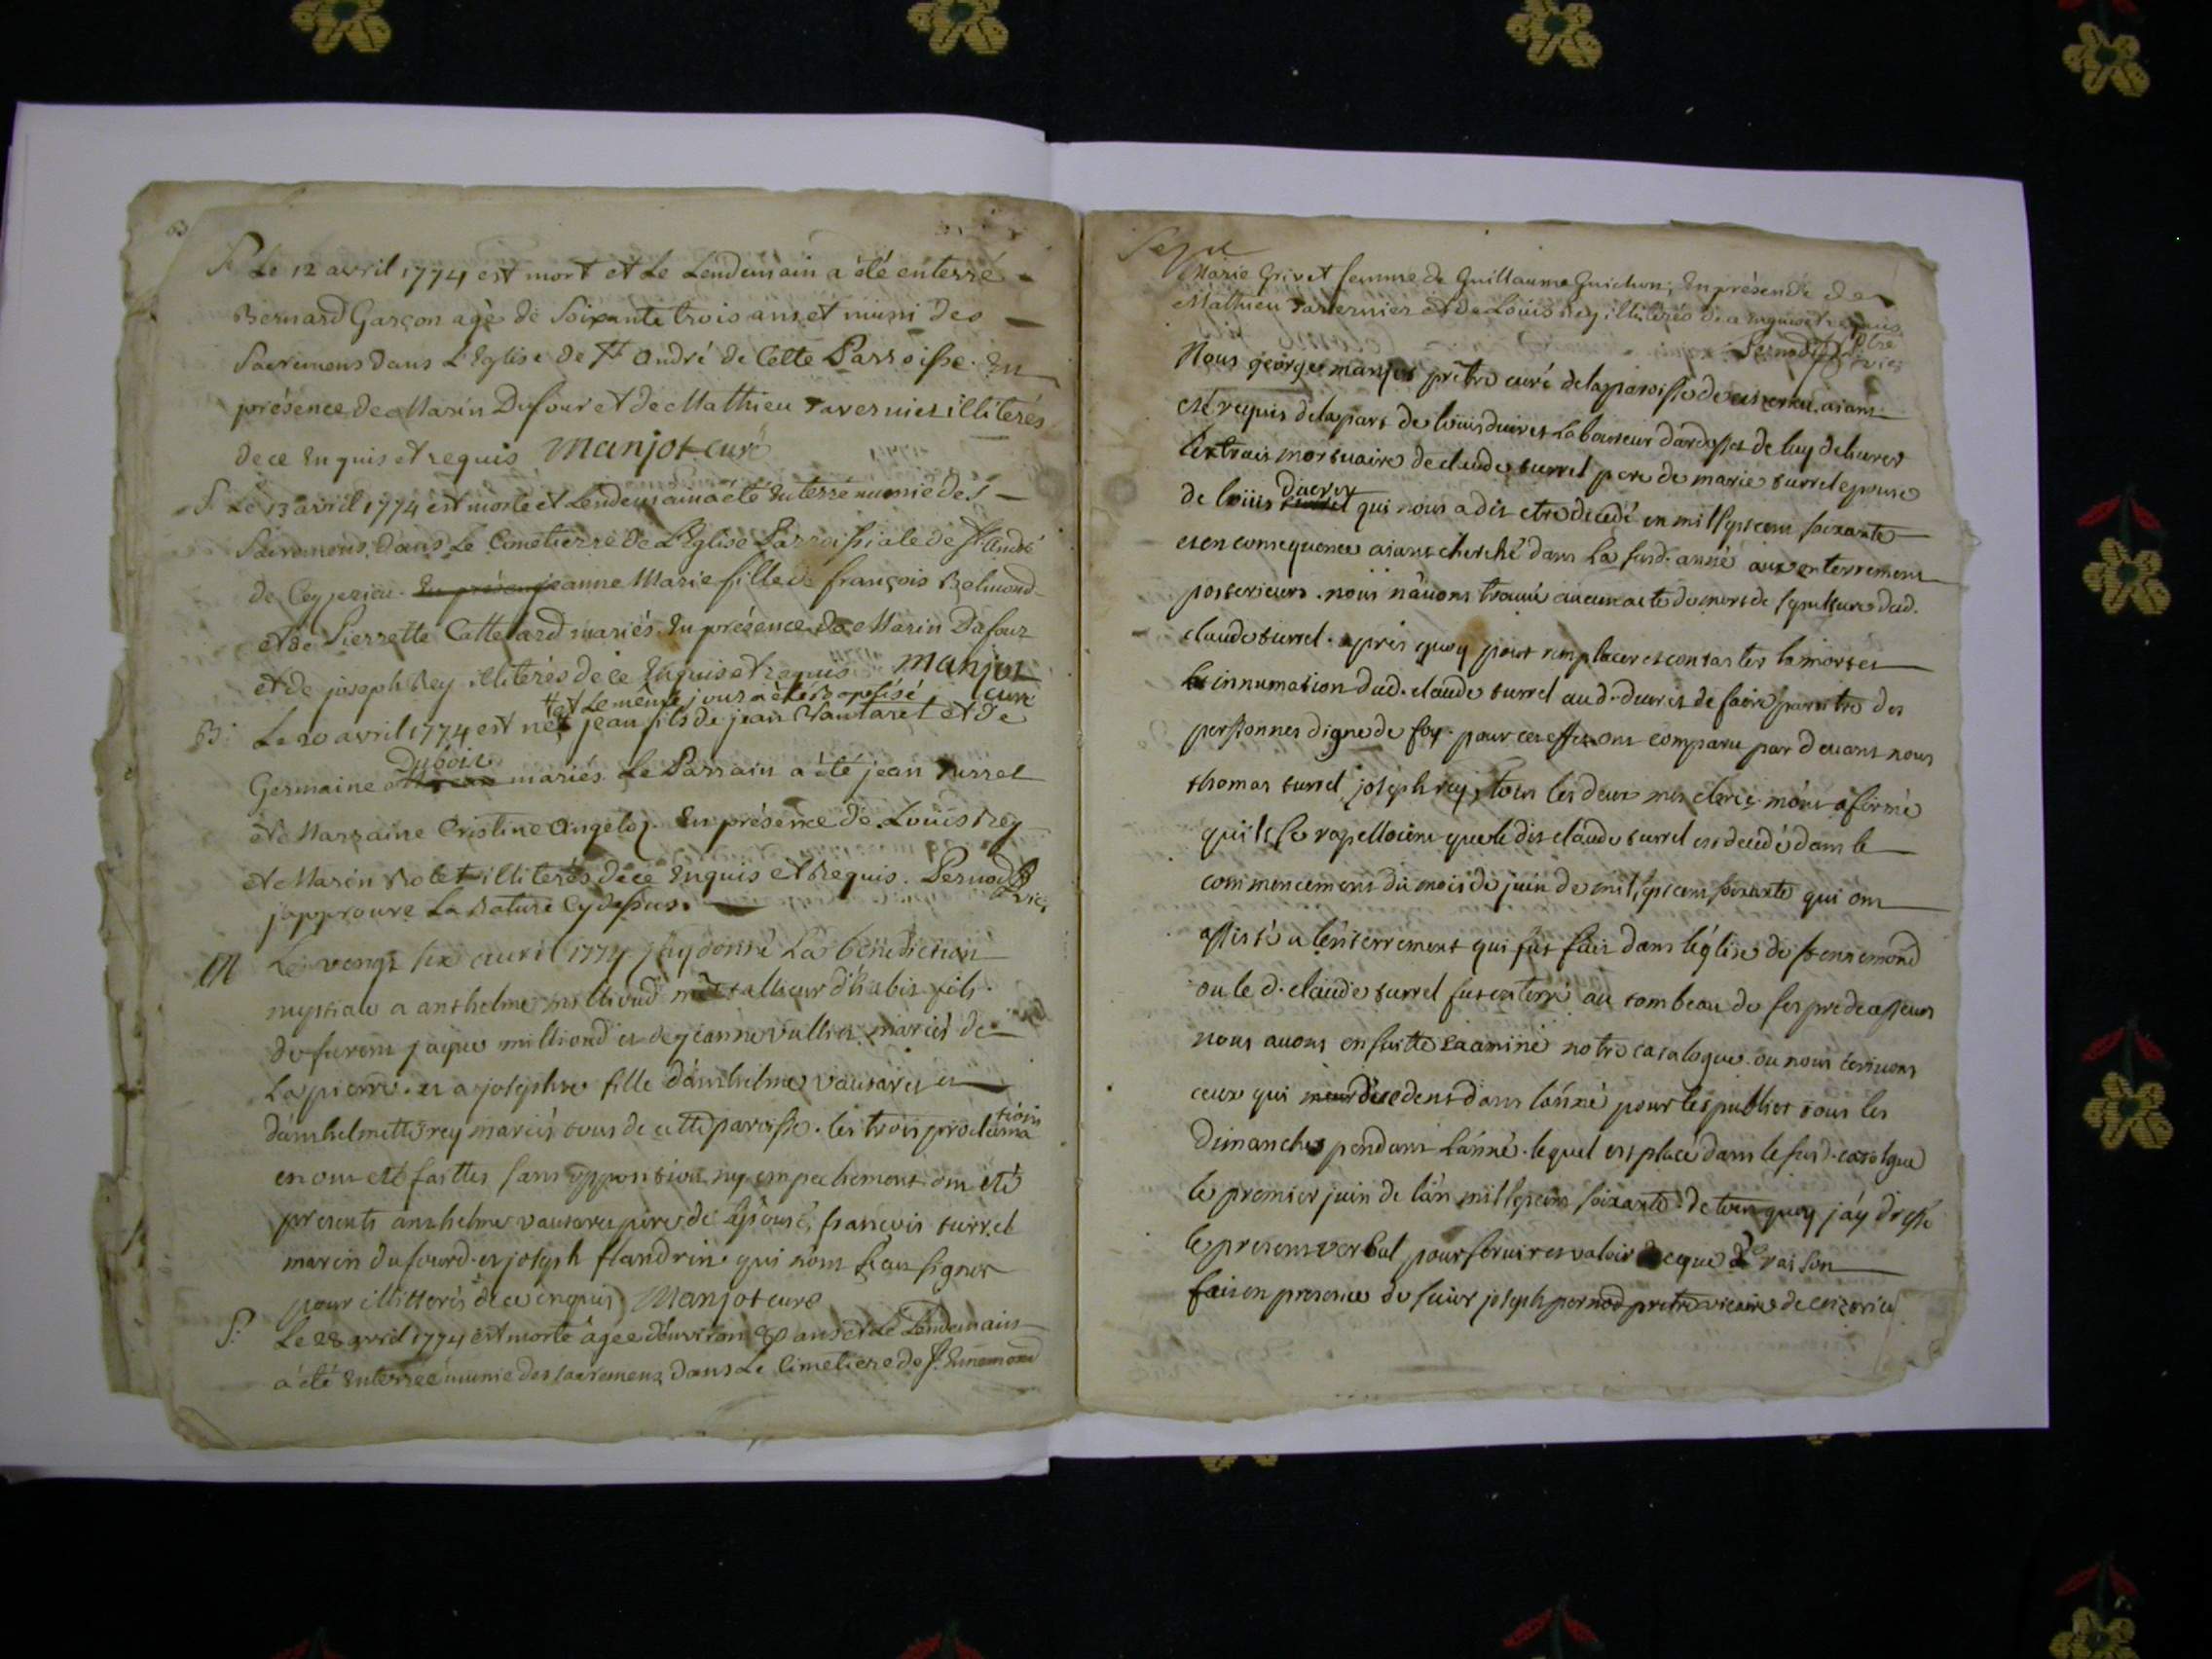 S. Le 12 avril 1774 est mort et Le Lendemain a été enterré
Bernard Garçon agè de Soixante trois ans et muni des
Sacremens dans L'Eglise de St André de Cette Parroisse. En
présence de Marin Dufour et de Mathieu Tavernier illiterés
de ce Enquis et requis Manjot curé
S. Le 13 avril 1774 est morte et Lendemain a été Enterré munie des
Sacremens, dans Le Cimetierre de L'Eglise Parroissiale de St André
de Ceyzerieu. En présen jeanne Marie fille de françois Belmond
et de Pierrette Cattelard mariés. En présence de Marin Dufour
et de joseph Rey illiterés de ce Enquis et requis Manjot curé
et Le même jour a été Baptisé
B. Le 20 avril 1774 est né jean fils de jean Vautaret et de
Dubois
Germaine mariés. Le Parrain a été jean Surrel
et Marraine Cristine Angeloz. En présence de Louis Rey
et Marin Rolet illiterés de ce Enquis et Requis. Pernod
vic.
japprouve La Rature Cy dessus.
M Le vengt six avril 1774 jay donné La bénédiction
nuptiale a anthelme milliond tallieur d'habit fils
de furent jaque milliond et de jeanne vullier mariés de
La pierre. et a josephte fille d'anthelme vautaret et
d'anthelmette rey mariés tous de cette paroisse. les trois proclama
tions
en ont eté faittes sans opposition ny empechement ont eté
presents anthelme vautaret pere de l'epouse, francois surrel
marin dufourd et joseph flandrin qui n'ont sceu signer
pour illitterés de ce enquis Manjot curé
S. Le 28 avril 1774 est morte âgee d'environ 80 ans et Le Lendemain
a été Enterreé munie des sacremens dans Le Cimetiere de St. Ennemond
Marie Grivet femme de Guillaume Guichon, En présence de
Mathieu Tavernier et de Louis Rey illiterés de ce enquis et requis
Pernod Ptre
vic.
Nous george manjot prêtre curé de la paroisse de ceizerieu aiant
eté requis de la part de louis duivet Laboureur d'ardosset de luy delivrer
l'extrait mortuaire de claude surrel pere de marie surrel epouse
de loüis duevet qui nous a dit etre decedé en mil sept cent soixante
et en consequence aiant cherché dans la susd. année aux enterremens
posterieurs. nous n'avons trouvé aucun acte de mort de sepulture dud.
claude surrel. apres quoy pour remplacer et constater la mort et
l'innumation dud. claude surrel aud. duevet de faire paroitre des
personnes digne de foy. pour cet effet ont comparu par devant nous
thomas surrel, joseph rey, tous les deux mes clercs m'ont afirmé
quils se rapelloient que le dit claude surrel est decedé dans le
commencement du mois de juin de mil sept cent soixante qui ont
assisté a l'enterrement qui fut fait dans l'église de st ennemond
ou le d. claude surrel fut enterré au tombeau de ses predecesseurs
nous avons en suitte éxaminé notre catalogue ou nous ecrivons
ceux qui decedent dans l'année pour les publier tous les
Dimanches pendant l'année. lequel est placé dans le susd. catalgue
le premier juin de l'an mil sept cent soixante. de tout quoy j'ay dressé
le present verbal pour servir et valoir ce que de raison
fait en presence de sieur joseph pernod pretre vicaire de ceizerieu